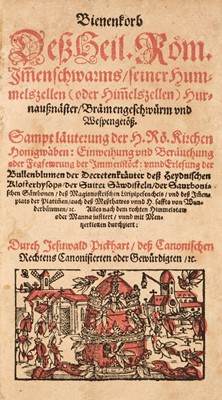 Bienenkorb
Deß Heil. Röm.
Jmenschwarms / seiner Hum-
melszellen (oder Him̃elszellen) Hur-
naußnäster / Brämengeschwürm vnd
Wespengetöß.
Sampt läuterung der H. Rö. Kirchen
Honigwaben: Einweihung vnd Beräuchung
oder Fegfewrung der Jmmenstöck: vnnd Erlesung der
Bullenblumen der Decretenkräuter / deß Heydnischen
Klosterhysops / der Suiter Säwdisteln / der
Säwbonen / deß
vnd deß
plats der Platimen / auch deß Meßthawes vnnd H. saffts von Wun-
derbäumen / ꝛc. Alles nach dem rechten Himmelstaw
oder Manna justiert / vnnd mit Men-
tzerkletten durchziert:
Durch Jesuwald Pickhart / deß Canonischen
Rechtens Canonisierten oder Gewürdigten / ꝛc.